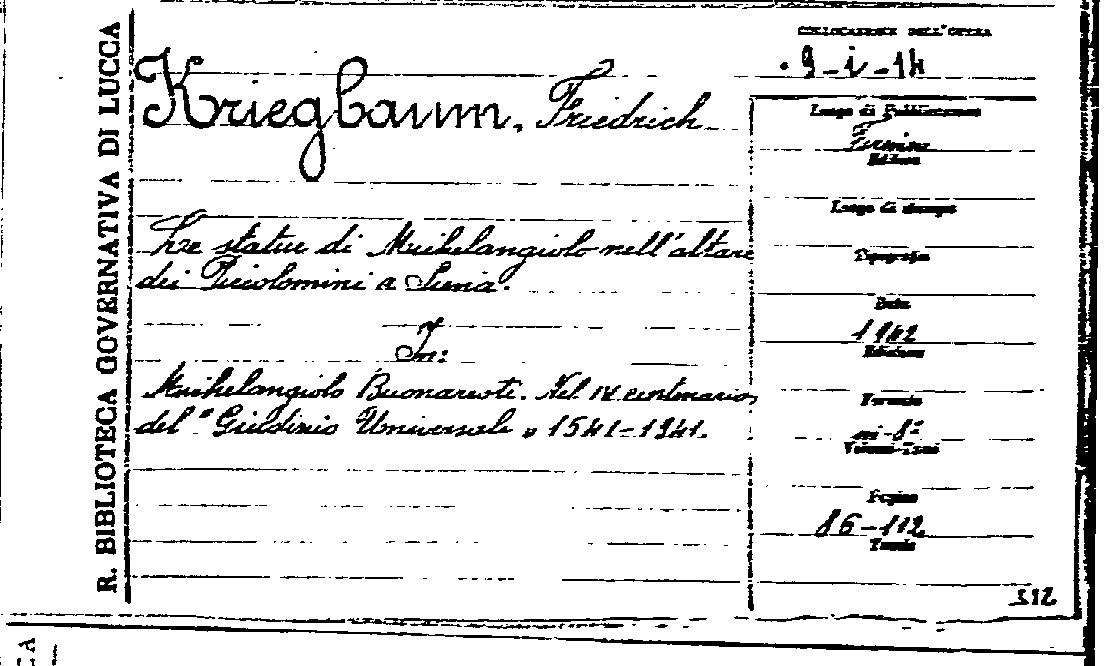 R. BIBLIOTECA GOVERNATIVA DI LUCCA
COLLOCAZIONE DELL'OPERA
9-i-14
Kriegbaum, Friedrich
Le statue di Michelangiolo nell'altare
dei Piccolomini a Siena.
In:
Michelangiolo Buonarroti. Nel IV centenario
del "Giudizio Universale" 1541-1941.
Luogo di Pubblicazione
Firenze
Editore
Luogo di stampa
Tipografia
Data
1942
Edizione
Formato
in-8°
Volumi-Tomi
Pagine
86-112
Tavole
312
CA